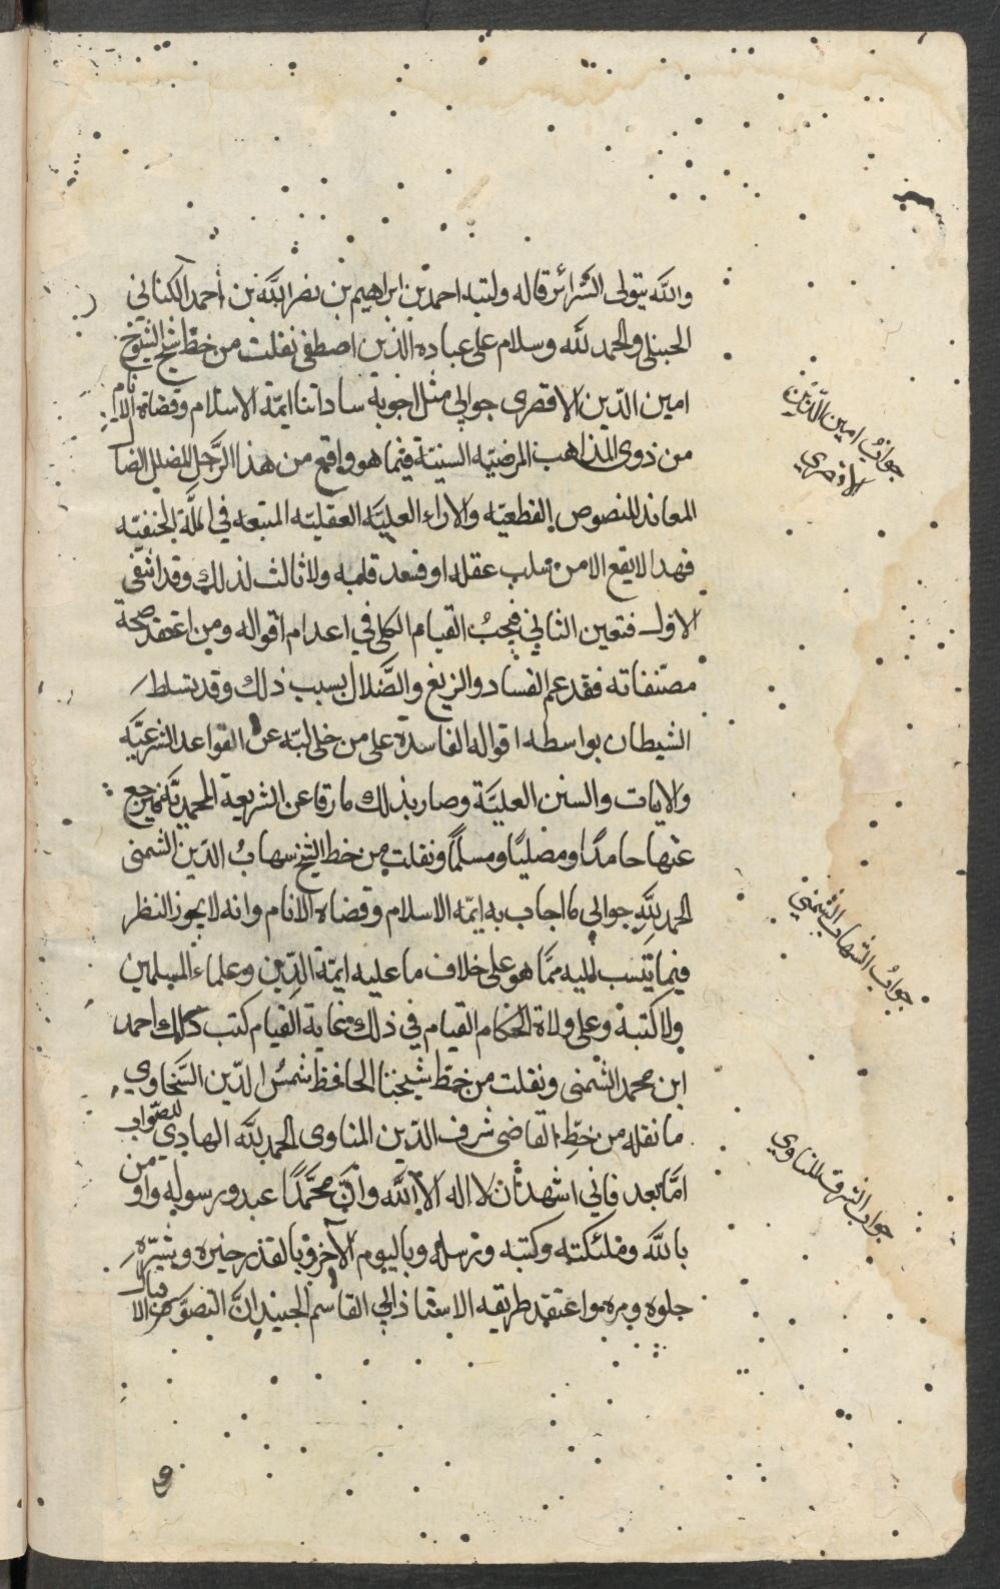 والله يتولى السرائر قاله وكتبه احمد بن ابراهيم بن نصر الله بن احمد الكناني
الحنبلي والحمد لله وسلام على عباده الذين اصطفى نقلت من خط شيخ الشيوخ
امين الدين الاقصرى جوابي مثل اجوبة ساداتنا ايمة الاسلام وقضاة الانام
من ذوى المذاهب المرضيه السنية فيما هو واقع من هذا الرجل المضل الضال
المعاند للنصوص القطعيه والاراء العليه العقليه المتبعه في الملة الحنفيه
فهدا لايقع الا من سلب عقله او فسد قلبه ولا ثالث لذلك وقد انتفى
الاول فتعين الثاني فيجب القيام الكلى في اعدام اقواله ومن اعتقد صحة
مصنفاته فقد عم الفساد والزيغ والضلال بسبب ذلك وقد تسلط
الشيطان بواسطه اقواله الفاسدة على من خلى لبه عن القواعد الشرعيه
والايات والسنن العلية وصار بذلك مارقا عن الشريعة المحمدية فيرجع
عنها حامدا ومصليا ومسلما ونقلت من خط الشيخ سهاب الدين الشمنى
الحمد لله جوابي كما اجاب به ايمه الاسلام وقضاه الانام وانه لا يجوز النظر
فيما ينسب اليه مما هو على خلاف ما عليه ايمة الدين وعلماء المسلمين
ولا كتبة وعلى ولاة الحكام القيام في ذلك غاية القيام كتب ذلك احمد
ابن محمد الشمنى ونقلت من خط شيخنا الحافظ شمس الدين السخاوي
ما نقله من خط القاضى شرف الدين المناوى الحمد لله الهادي للصواب
اما بعد فاني اشهد ان لا اله الا الله وان محمدا عبده ورسوله واومن
بالله وملئكته وكتبه ورسله وباليوم الآخر وبالقدر خيره وشره
حلوه ومره واعتقد طريقه الاستاذ ابي القاسم الجنيد ان التصوف
جواب امين الدين
الاقصري
جواب الشهاب الشمني
جواب الشرف المناوي
و